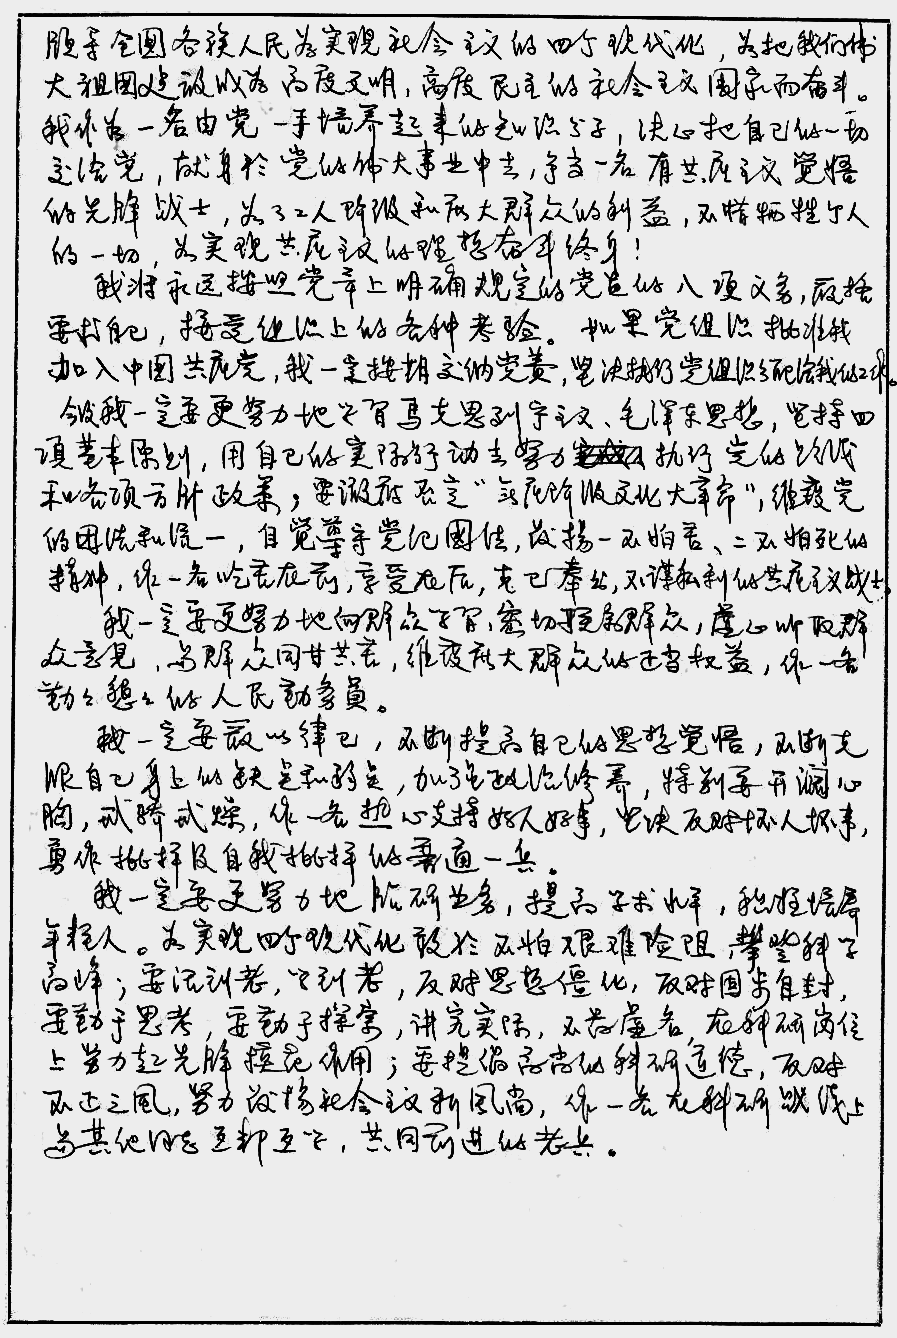 领导全国各族人民为实现社会主义的四个现代化，为把我们伟
大祖国建设成为高度文明，高度民主的社会主义国家而奋斗。
我作为一名由党一手培养起来的知识分子，决心把自己的一切
交给党，献身于党的伟大事业中去，争当一名有共产主义觉悟
的先锋战士，为了工人阶级和广大群众的利益，不惜牺牲个人
的一切，为实现共产主义的理想奋斗终身！
我将永远按照党章上明确规定的党员的八项义务，严格
要求自己，接受组织上的各种考验。如果党组织批准我
加入中国共产党，我一定按期交纳党费，坚决执行党组织分配给我的工作。
我一定要更努力地学习马克思列宁主义、毛泽东思想，坚持四
项基本原则，用自己的实际行动去努力执行党的路线
和各项方针政策；要彻底否定“无产阶级文化大革命”，维护党
的团结和统一，自觉遵守党纪国法，发扬一不怕苦、二不怕死的
精神，作一名吃苦在前，享受在后，克己奉公，不谋私利的共产主义战士。
我一定要更努力地向群众学习，密切联系群众，虚心听取群
众意见，与群众同甘共苦，维护广大群众的正当权益，作一名
勤勤恳恳的人民勤务员。
我一定要严以律己，不断提高自己的思想觉悟，不断克
服自己身上的缺点和弱点，加强政治修养，特别要开阔心
胸，戒骄戒燥，作一名热心支持好人好事，坚决反对坏人坏事，
勇作批评及自我批评的普通一兵。
我一定要更努力地钻研业务，提高学术水平，积极培养
年轻人。为实现四个现代化敢于不怕艰难险阻，攀登科学
高峰；要活到老，学到老，反对思想僵化，反对固步自封，
要勤于思考，要勤于探索，讲究实际，不务虚名，在科研岗位
上努力起先锋模范作用；要提倡高尚的科研道德，反对
不正之风，努力发扬社会主义新风尚，作一名在科研战线上
与其他同志互帮互学，共同前进的老兵。